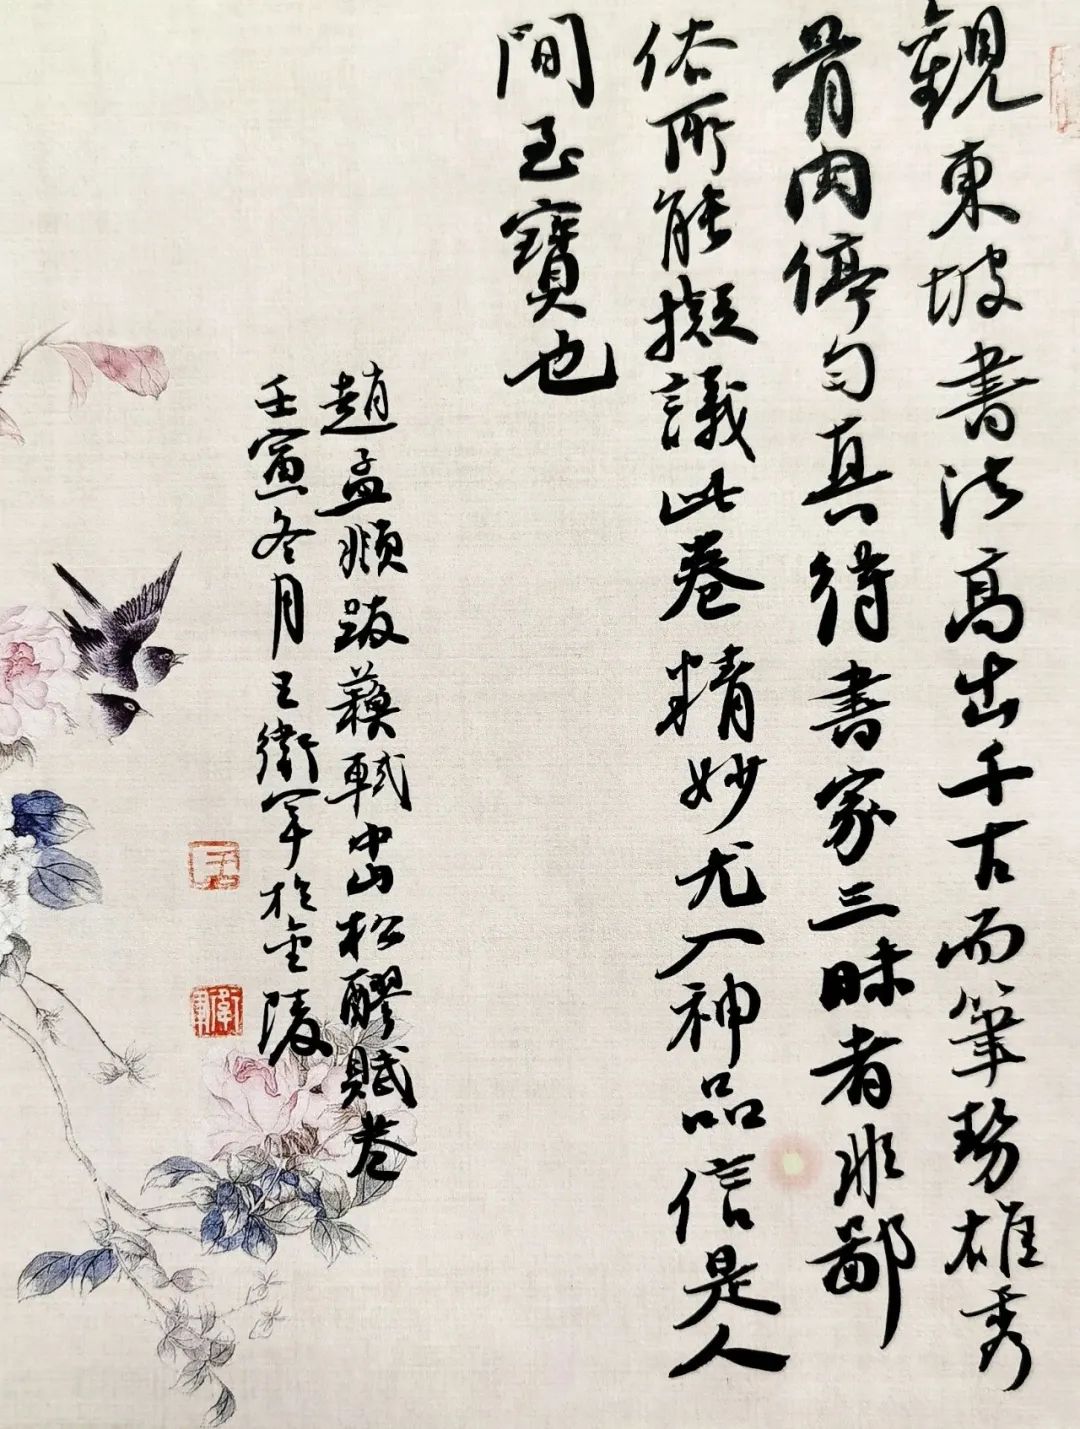 觀東坡書法高出千古而筆勢雄秀
骨肉停勻真得書家三昧者非鄙
俗所能擬議此卷精妙尤入神品信是人
間至寶也
趙孟頫跋蘇軾中山松醪賦卷
壬寅冬月王衛軍於金陵
王
衛軍